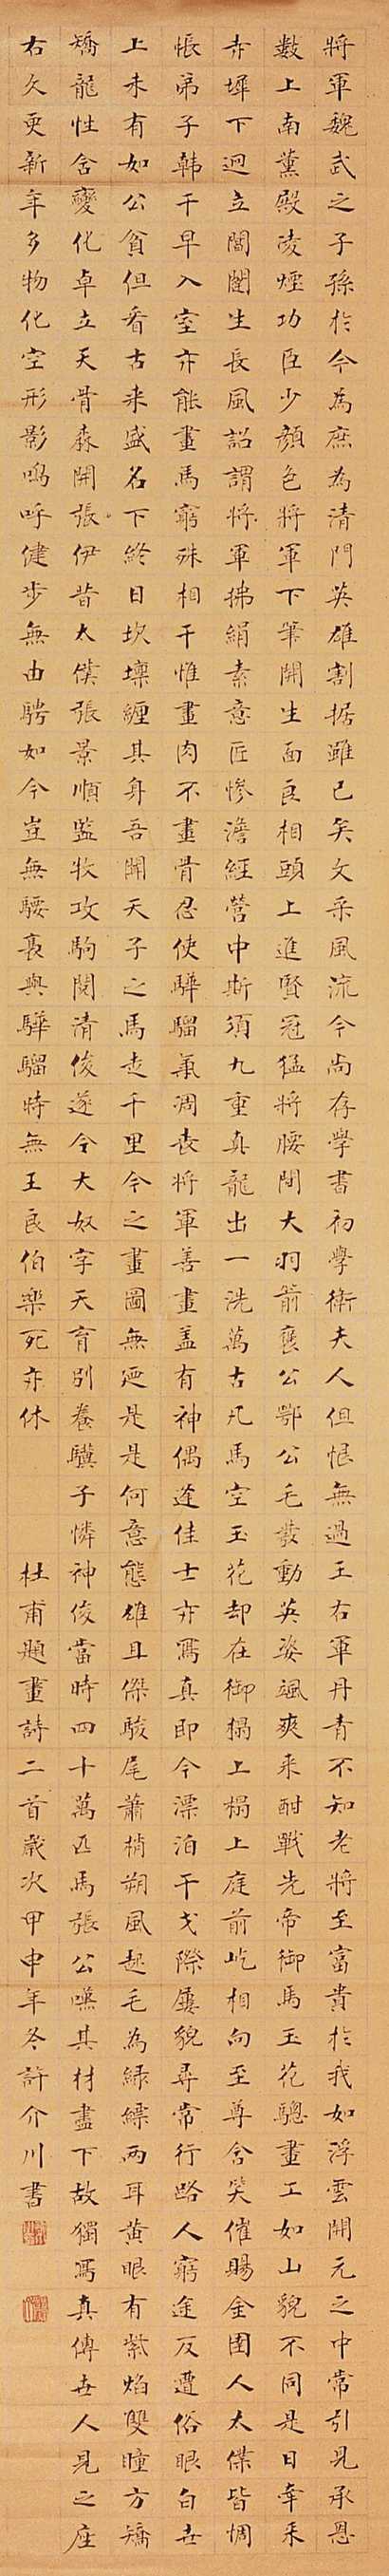 將軍魏武之子孫於今為庶為清門英雄割据雖已矣文采風流今尚存學書初學衛夫人但恨無過王右軍丹青不知老將至富貴於我如浮雲開元之中常引見承恩
數上南薰殿凌煙功臣少顏色將軍下筆開生面良相頭上進賢冠猛將腰間大羽箭褒公鄂公毛髮動英姿颯爽来酣戰先帝御馬玉花驄畫工如山貌不同是日牽来
赤墀下迥立閶闔生長風詔謂將軍拂絹素意匠慘澹經營中斯須九重真龍出一洗萬古凡馬空玉花却在御榻上榻上庭前屹相向至尊含笑催賜金圉人太僕皆惆
悵弟子韓干早入室亦能畫馬窮殊相干惟畫肉不畫骨忍使驊騮氣凋喪將軍善畫盖有神偶逢佳士亦寫真即今漂泊干戈際屢貌尋常行路人窮途反遭俗眼白世
上未有如公貧但看古来盛名下終日坎壈纏其身吾聞天子之馬走千里今之畫圖無迺是是何意態雄且傑駿尾蕭梢朔風起毛為綠縹兩耳黃眼有紫焰雙瞳方矯
矯龍性含變化卓立天骨森開張伊昔太僕張景順監牧攻駒閱清俊遂令大奴字天育別養驥子憐神俊當時四十萬匹馬張公嘆其材盡下故獨寫真傳世人見之座
右久更新年多物化空形影嗚呼健步無由騁如今豈無騕褭與驊騮時無王良伯樂死亦休 杜甫題畫詩二首歲次甲申年冬許介川書